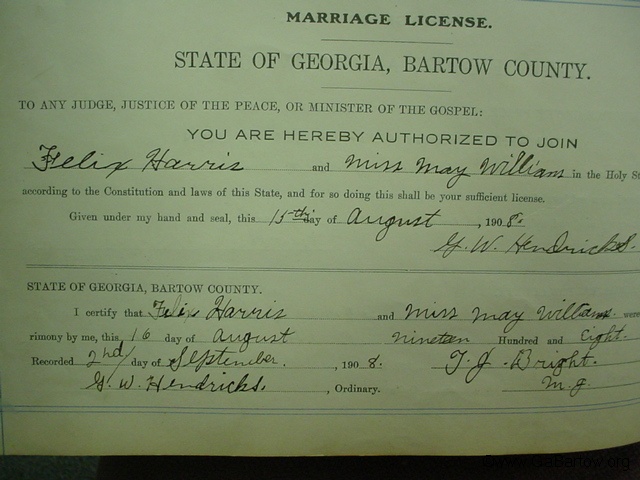 MARRIAGE LICENSE.
STATE OF GEORGIA, BARTOW COUNTY.
TO ANY JUDGE, JUSTICE OF THE PEACE, OR MINISTER OF THE GOSPEL:
YOU ARE HEREBY AUTHORIZED TO JOIN
Felix Harris and Miss May William in the Holy St
according to the Constitution and laws of this State, and for so doing this shall be your sufficient license.
Given under my hand and seal, this 15th day of August, 1908.
G. W. Hendricks.
STATE OF GEORGIA, BARTOW COUNTY.
I certify that Felix Harris and Miss May Williams were
rimony by me, this 16 day of August nineteen Hundred and Eight.
Recorded 2nd day of September, 1908. T. J. Bright.
G. W. Hendricks, Ordinary. M. G.